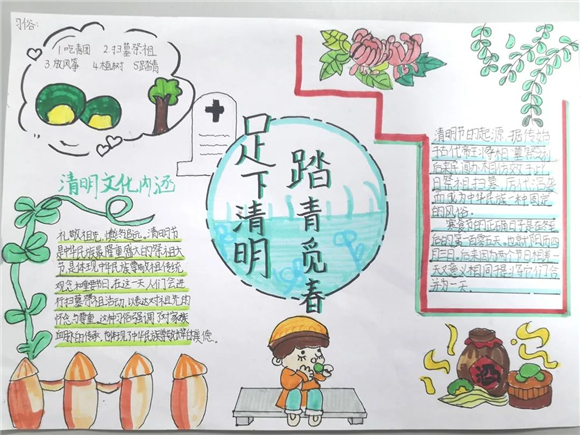 习俗:
1.吃青团 2.扫墓祭祖
3.放风筝 4.植树 5踏青
足下清明
踏青觅春
清明文化内涵
礼敬祖先,慎终追远。清明节
是中华民族最隆重盛大的祭祖大
节,是体现中华民族尊敬祖先传统
观念和重要节日。在这一天人们会进
行扫墓祭祖活动,以表达对祖先的
怀念与尊重。这种习俗强调了对家族
的传承,也体现了中华民族尊敬
清明节的起源,据传始
于古代帝王将相墓祭之礼
后来民间亦相仿效,于此
日祭祖扫墓,历代沿袭
而成为中华民族一种固定
的风俗。
寒食节的正确日子是在冬至
后的第一百零五天,也就
后来因为两个节日相
天,又意义相同,
为一天。
酒